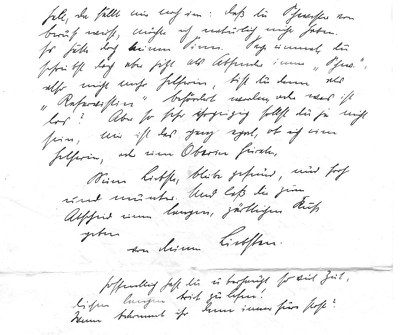 Halt, da fällt mir noch ein: daß du Schwester von
Beruf wirst, möchte ich natürlich nicht haben.
So hätte doch keinen Sinn. Doch einmal, du
schreibst doch aber jetzt als Absender immer "Schw.",
also nicht mehr Helferin, bist du denn als
" " befördert worden, oder was ist
los? Aber so sehr sollst du ja nicht
sein, mir ist das ganz egal, ob ich eine
Helferin, oder eine Oberin
Meine Liebste, bleibe gesund, und froh
und munter. Und laß dir zum
Abschied einen langen, zärtlichen Kuß
geben
von deinem Liebsten.
Hoffentlich hast du überhaupt so viel Zeit,
diesen langen Brief zu lesen!
Wann bekommt ihr denn immer eure Post?